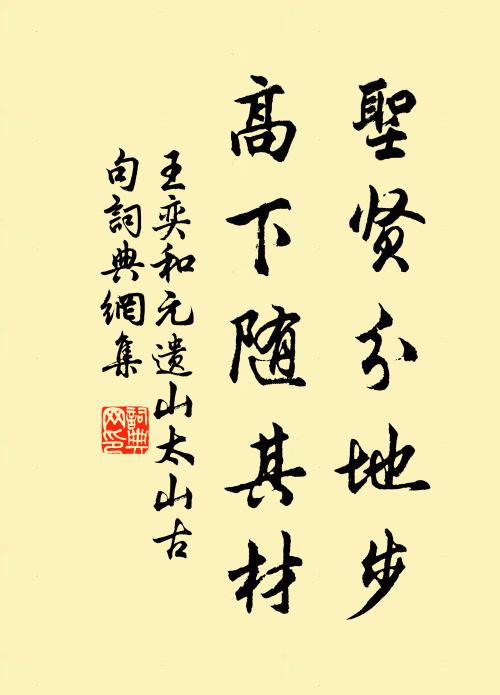 聖贤分地步
高下随其材
王奕和元遗山太山古
句詞典網集
詞典
网印